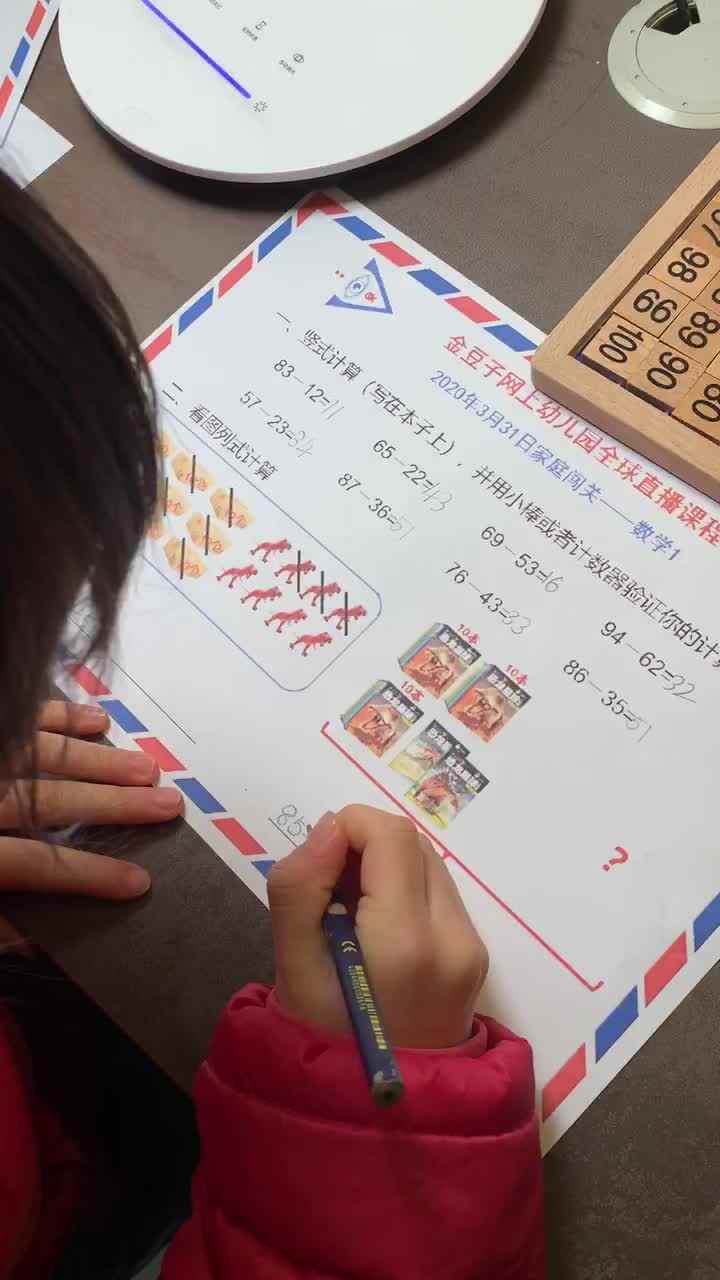 金豆子网上幼儿园全球直播课程
2020年3月31日家庭闯关——数学1
一、竖式计算（写在本子上），并用小棒或者计数器验证你的计
83－12=11
65－22=43
69－53=16
94－62=32
57－23=34
87－36=51
76－43=33
86－35=51
二、看图列式计算
10本
10本
10本
？
85
97
98
99
100
89
90
80
CE